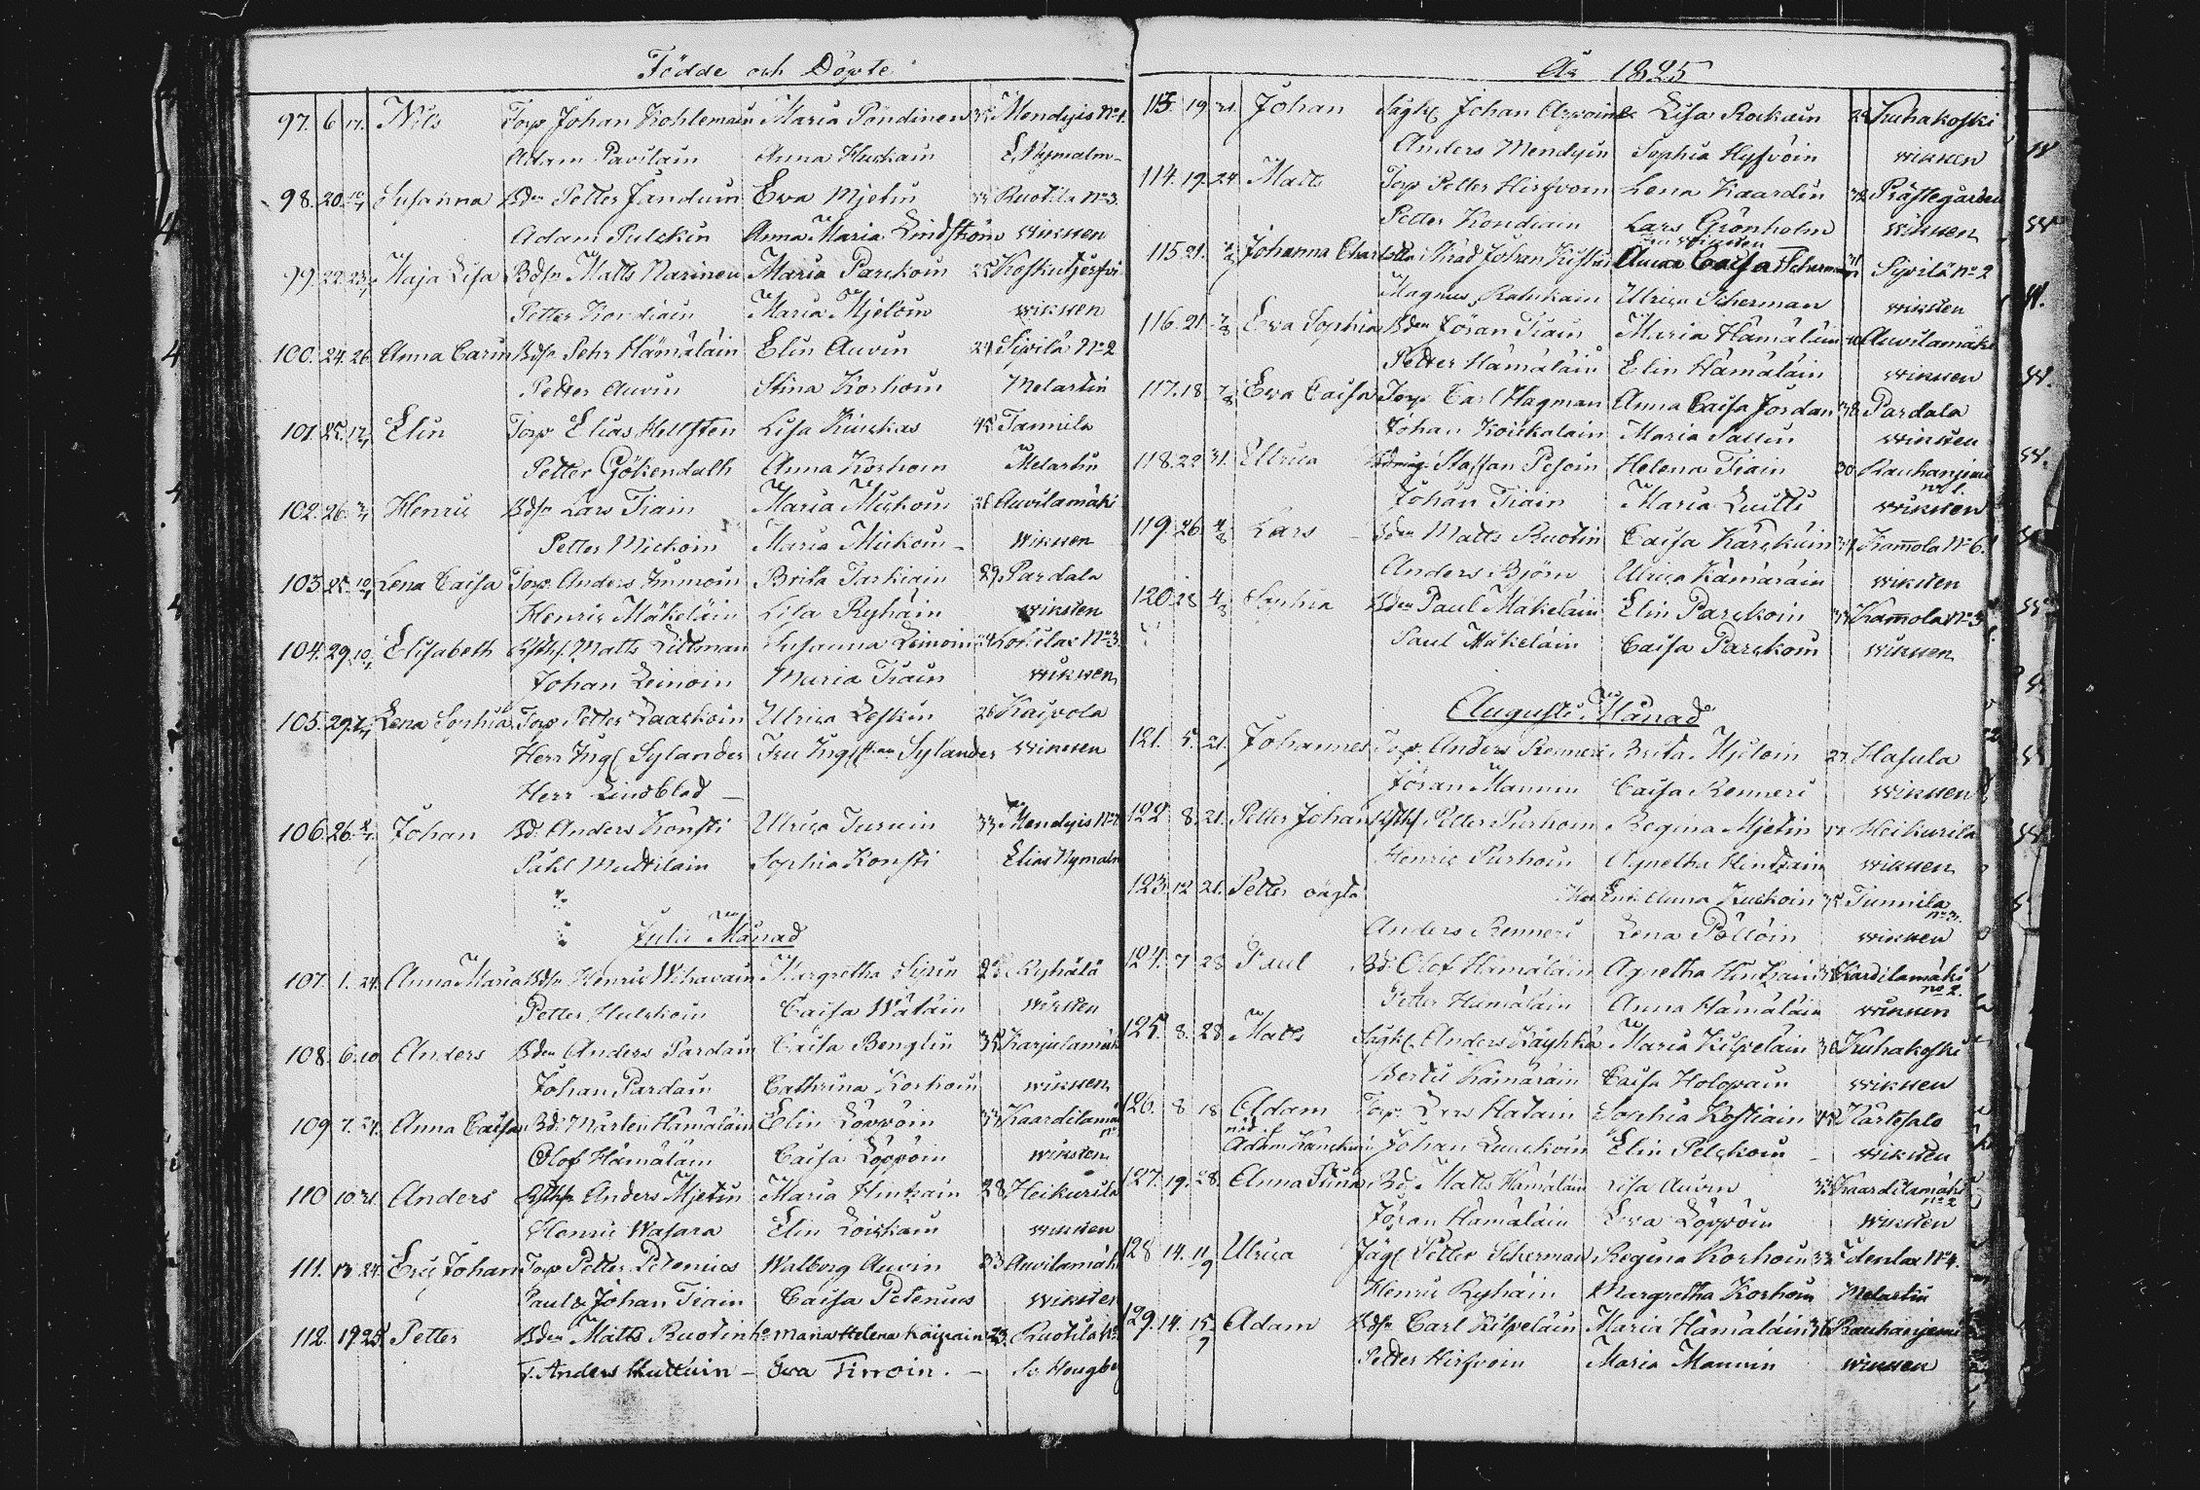 Födde och Döpte
97. 6 17. Nils Torp Johan Kohlemain Maria Pöndinen 35 Mendyis No 1.
Adam Pavilain Anna Huskain E. Nymalm
98. 20. Susanna Bdn Petter Janduin Ewa Mjetin 35 Ruotila No 3.
Adam Pulskin Anna Maria Lindström Wiksten
99. 22. Maja Lisa Bdsn Matts Narinen Maria Parckoin 25 Koskutjerfvi
Petter Kondiain Maria Mjeloin Wiksten
100. 24. 26 Anna Carin Bdsn Pehr Hämäläin Elin Auvin 24 Sipilä No 2
Petter Auvin Stina Korhoin Melartin
101 25. Elin Torp Elias Hellsten Lisa Kinskas 45 Tammila
Petter Gökendahl Anna Korhoin Melartin
102. 26. Henric Bdsn Lars Tiain Maria Mickoin 26 Auvilamäki
Petter Mickoin Maria Mickoin Wiksten
103. 25. Lena Caisa Torp. Anders Immoin Brita Tarkiain 29 Pardala
Henric Mäkeläin Lisa Ryhäin Wiksten
104. 29. Elisabeth Matts Littsman Susanna Leinoin No 3.
Johan Leinoin Maria Tiain Wiksten
105. 29. Lena Sophia Torp Petter Laaskoin Ulrica Leskin 26 Kaipola
Herr Ingl Sylander Fru Ingl Sylander Wiksten
Herr Lindblad
106. 26. Johan Bd. Anders Konsti Ulrica Turuin 33 Mendyis No
Påhl Multilain Sophia Konsti Elias Nymalm
Julii Månad
107. 1. 24. Anna Maria Bdsn Henric Wihavain Margretha Sijrin 28 Ryhälä
Petter Hulskoin Caisa Wätäin Wiksten
108. 6. 10 Anders Bdn Anders Pardain Caisa Benglin 35 Karjulamäki
Johan Pardain Cathrina Korhoin Wiksten
109 7. 24. Anna Caisa Bd. Mårten Hämäläin Elin Löppöin 34 Kaardilamäki
Olof Hämäläin Caisa Löppöin Wiksten
110 10. 21. Anders Anders Mjetin Maria Hintzain 28 Heikurila
Henric Wasara Elin Loiskain Wiksten
111. 13. 24. Eric Johan Torp Petter Petenius Walborg Auvin 33 Auvilamäki
Paul & Johan Tiain Caisa Petenius Wiksten
112. 19 25 Petter Bdn Matts Ruotin ho Maria Helena Kaipiain 23. Ruotila No
T. Anders Huttuin – Ewa Tirroin. – So Hougberg
År 1825
113. 19 21. Johan Johan Arpoin Lisa Rockain 28 Kuhakoski
Anders Mendyin Sophia Hyfvöin Wiksten
114. 19. 24 Matts Torp Petter Hirfvoin Lena Kaardin 38 Prästegården
Petter Kondiain Lars Grönholm Wiksten
115. 21. Johanna Charlotta Skräd Johan Anna Caisa Scherman Sipilä No 2
Magnus Rahikain Ulrica Scherman Wiksten
116. 21. 7/8 Ewa Sophia Bdn Jöran Tiain Maria Hämäläin Auvilamäki
Petter Hämäläin Elin Hämäläin Wiksten
117. 18. 7/8 Ewa Caisa Torp. Carl Hagman Anna Caisa Jordan 38 Pardala
Johan Koickalain Maria Sallin Wiksten
118. 22 31. Ullrica Staffan Pesoin Helena Tiain 30 Rauhanjemi
No 1.
Johan Tiain Maria Luitti Wiksten
119. 26 4/8 Lars Bdn Matts Ruotin Caisa Karskain 34 Kammola No 6.
Anders Björn Ulrica Kämäräin Wiksten
120 28 4/8 Sophia Bdn Paul Mäkeläin Elin Parckoin Kammola No 3
Paul Mäkeläin Caisa Parckoin Wiksten
Augusti Månad
121. 5. 21. Johannes Torp. Anders Renneri Brita Mjeloin 27. Hasula
Jöran Mannin Caisa Renneri Wiksten
122 8. 21. Petter Johan Petter Purhoin Regina Mjetin Heikurila
Henric Purhoin Agnetha Hintzain Wiksten
123. 12 21. Petter oägta Mod Enk. Anna Kuckoin 35 Tunnila
No 3.
Anders Renneri Lena Pöllöin Wiksten
124. 7 28 Paul Bd. Olof Hämäläin Agnetha Hintzain Kardilamäki
No 2.
Petter Hämäläin Anna Hämäläin Wiksten
125. 8. 28. Matts Anders Käyhkä Maria Kilpeläin 36 Kuhakoski
Bertil Kämäräin Caisa Holopain Wiksten
126. 8 18 Adam Torp. Lars Hatain Sophia Kostiain 42 Kärtesalo
Johan Luuckoin Elin Pelckoin Wiksten
127. 19. 28. Anna Stina Bd. Matts Hämäläin Lisa Auvin 35 Kaardilamäki
No 2
Jöran Hämäläin Ewa Löppöin Wiksten
128 14. 11/9 Ulrica Petter Scherman Regina Korhoin 32 Idenlax No 4.
Henric Ryhäin Margretha Korhoin Melartin
129. 14. Adam Bdsn Carl Kilpeläin Maria Hämäläin 36 Rauhanjemi
Petter Hirfvoin Maria Mannin Wiksten